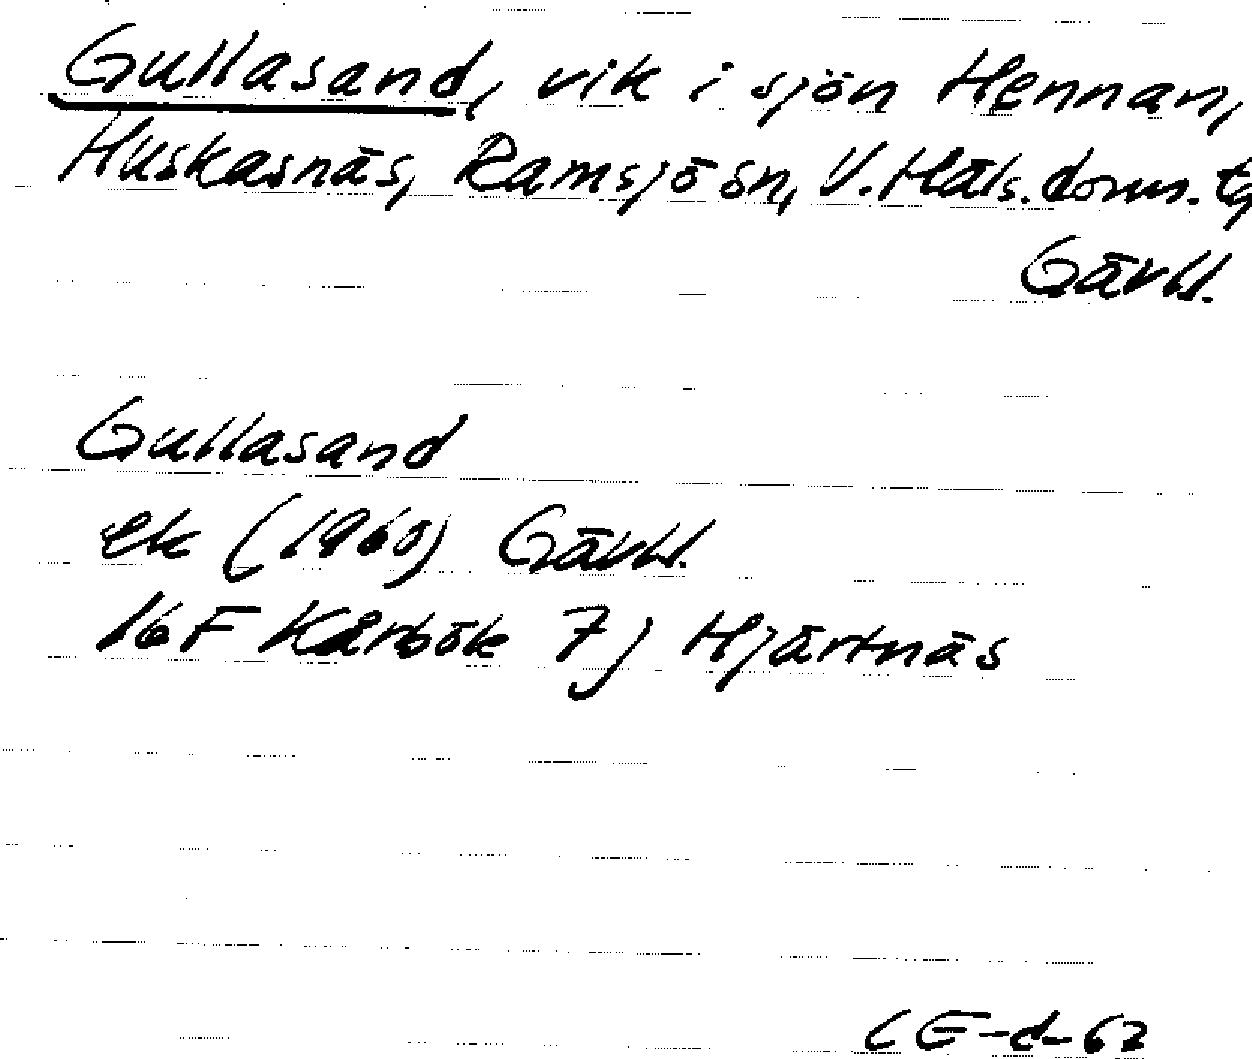 Gullasand, vik i sjön Hennan,
Huskasnäs, Ramsjö sn, V. Häls. doms. tg
Gävll.
Gullasand
ek (1960) Gävll.
16 F Kårböle 7 j Hjärtnäs
CE-d-62